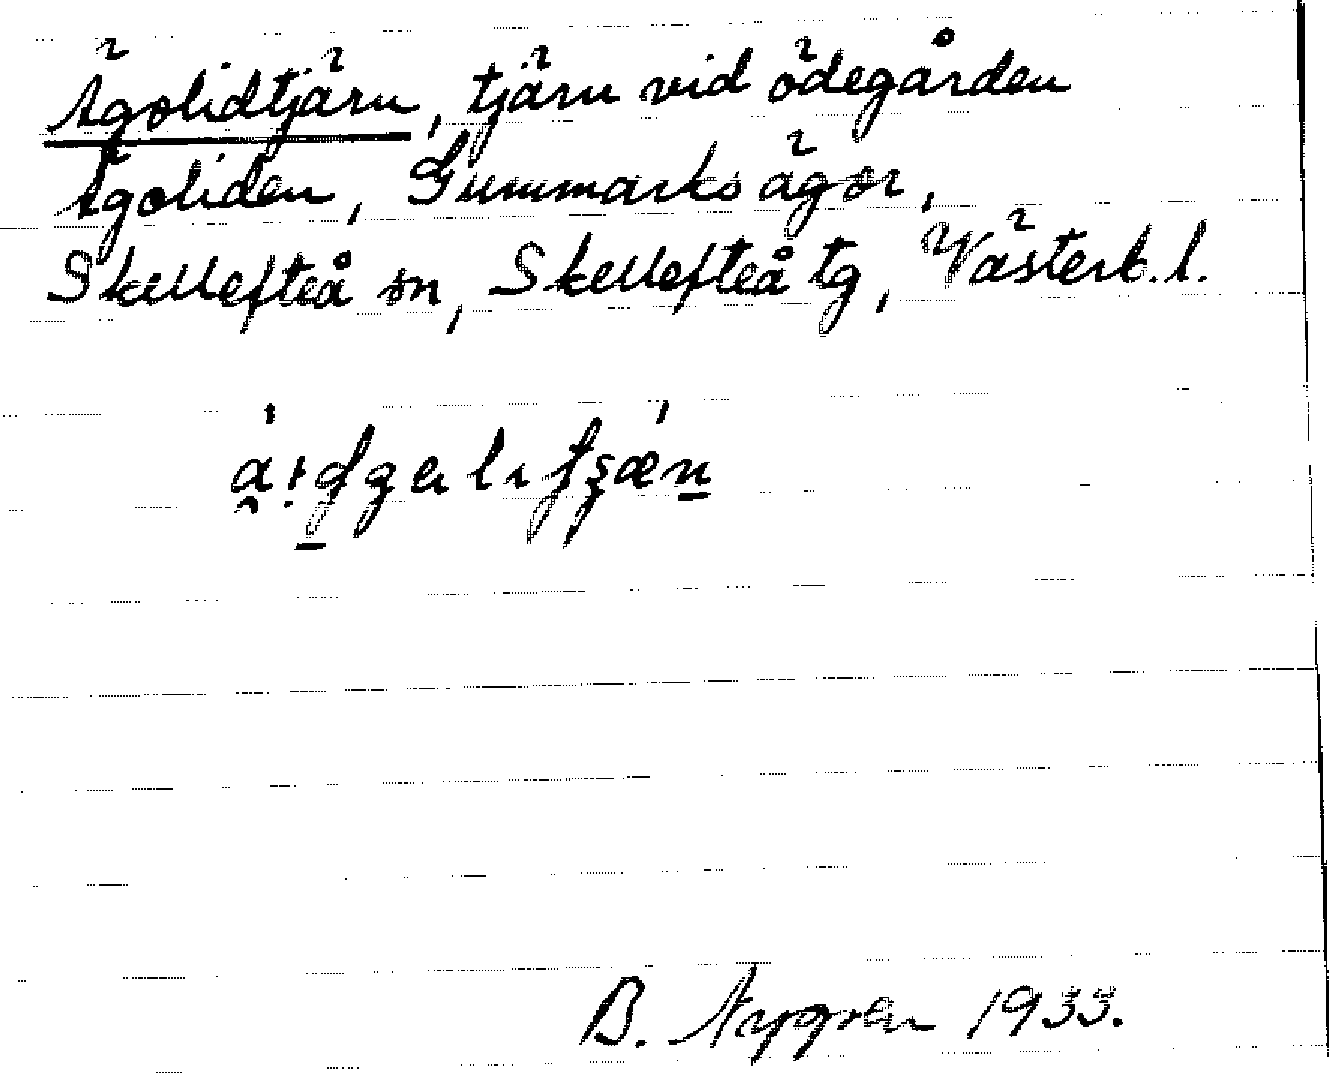 Ägolidtjärn, tjärn vid ödegården
Ägoliden, Gummarks ägor,
Skellefteå sn, Skellefteå tg, Västerb. l.
B. Nygren 1933.